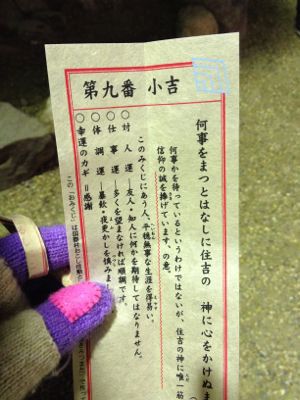 第九番 小吉
何事をまつとはなしに住吉の 神に心をかけぬま
何事かを待っているというわけではないが、住吉の神に唯一筋
信仰の誠を捧げています、の意。
このみくじにあう人、平穏無事な生涯を得易い。
○対人運―友人・知人に何かを期待してはなりません。
○仕事運―多くを望まなければ順調です。
○体調運―暴飲・夜更かしを慎みま
○幸運のカギ＝感謝
この「おみくじ」は国際花おこし